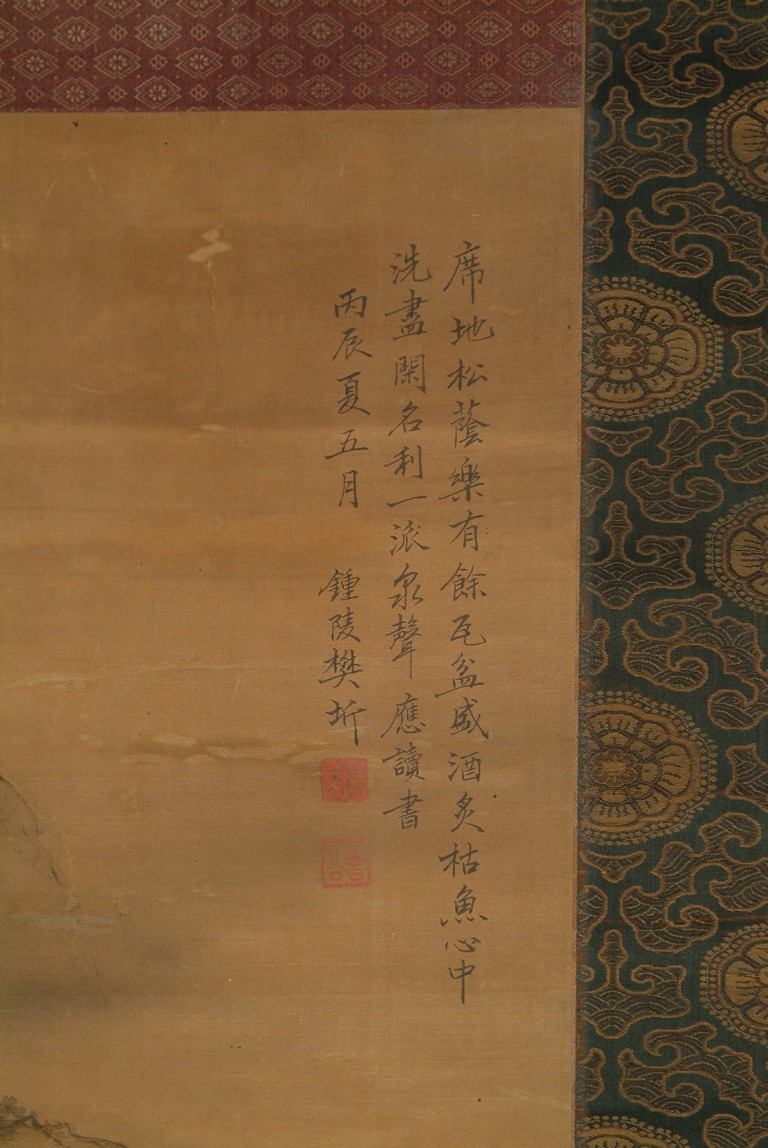 席地松蔭樂有餘瓦盆盛酒炙枯魚心中
洗盡閑名利一派泉聲應讀書
丙辰夏五月 鍾陵樊圻